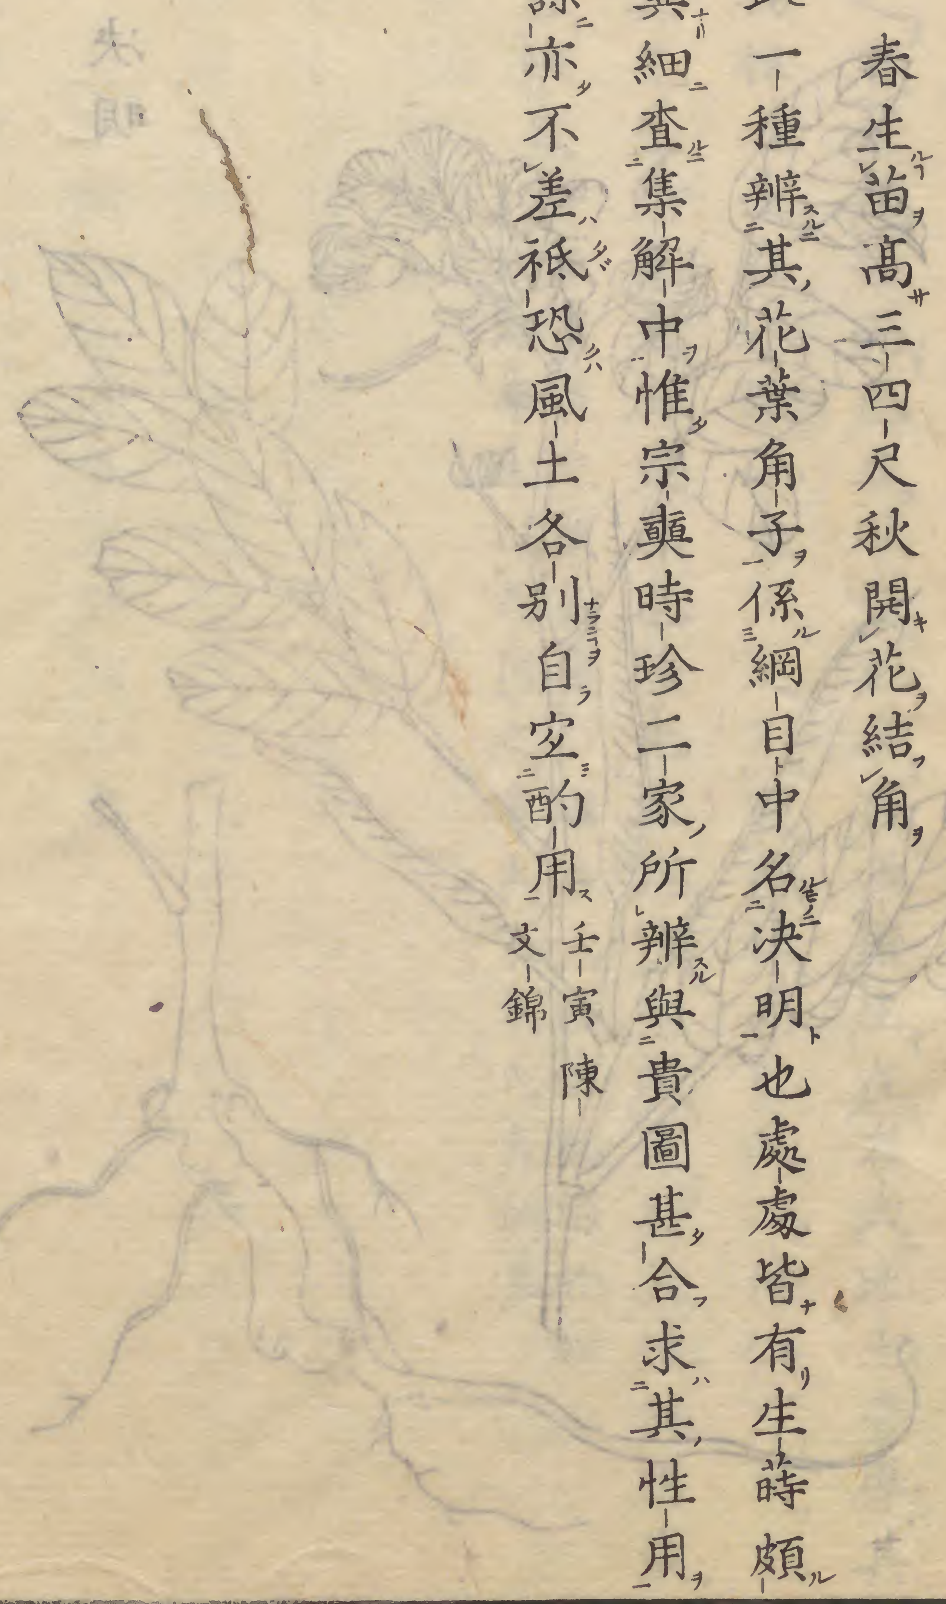 春生苗高三四尺秋開花結角
一種辨其花葉角子係綱目中名决明也處處皆有生蒔頗
異細査集解中惟宗奭時珍二家所辨與貴圖甚合求其性用
亦不差祗恐風土各別自宜酌用
壬寅 陳
文錦
决明